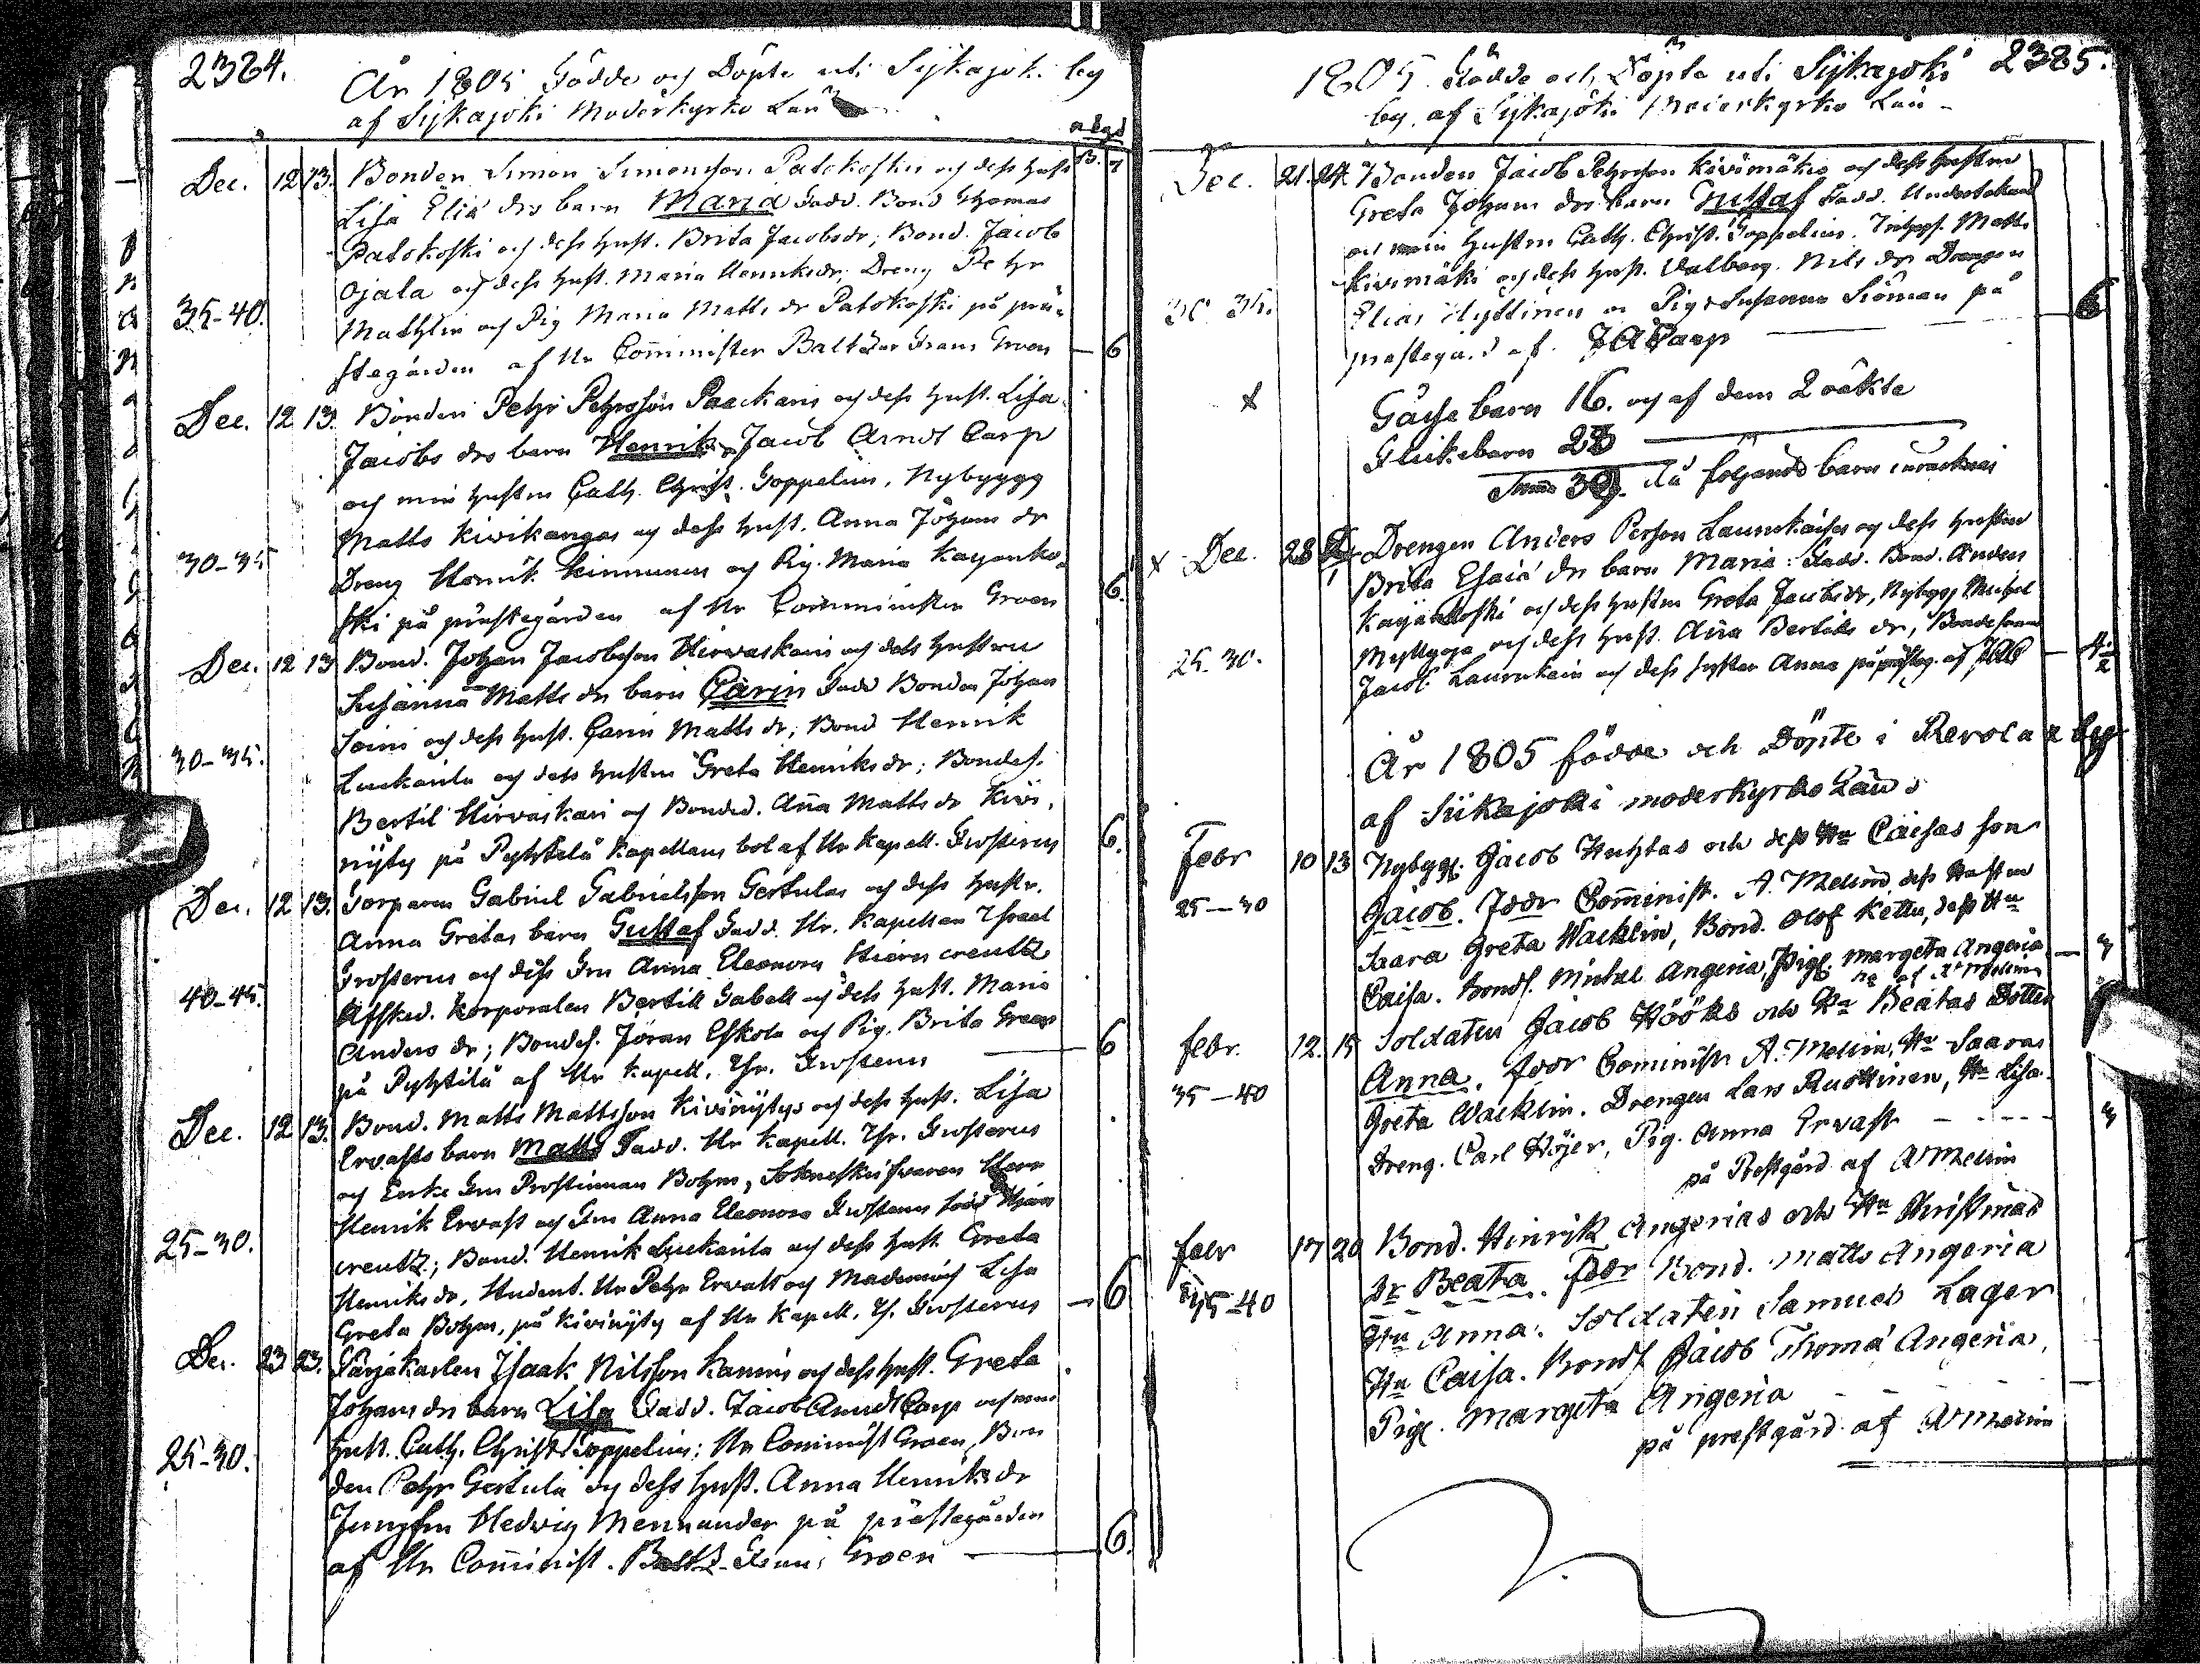 2384.
År 1805 Födde och Döpte uti Sijkajoki by
af Sijkajoki Moderkyrko Län
Dec. 12 13. Bonden Simon Simonsson Patokoskis och dess hust
Lisa Eliæ drs barn Maria Fadd. Bond Thomas
Patokoski och dess hust. Brita Jacobsdr; Bond. Jacob
Ojala och dess hust. Maria Henriksdr; Dreng Petr
35-40. Mathlin och Pig Maria Matts dr Patokoski på prä-
stegården af Hr Comminister Baltzar Frans Groen 6
Dec. 12 13. Bonden Pehr Pehrsson Paackaris och dess hust. Lisa
Jacobs drs barn Henrik Jacob Arndt Carp
och min hustru Cath. Christ. Toppelius, Nybyggg
Matts Kivikangas och dess hust. Anna Johans dr
30-35 Dreng Henrik Kinnunen och Pig. Maria Kayanko-
ski på prästegården af Hr Comminister Groen 6.
Dec. 12 13 Bond. Johan Jacobsson Hirvaskaris och dess hustru
Susanna Matts drs barn Carin Fadd Bonden Johan
Soini och dess hust. Carin Matts dr; Bond Henrik
30-35. Luckarila och dess hustru Greta Henriks dr; Bondes.
Bertil Hirvaskari och Bonded. Aña Matts dr Kivi-
nijty på Pyhtilä Kapellans bol af Hr Kapell. Frosterus 6.
Dec. 12 13. Torparen Gabriel Gabrielsson Gertulas och dess hustr.
Anna Gretas barn Gustaf Fadd. Hr. Kapellan Israel
Frosterus och dess Fru Anna Eleonora Stierncreutz
40-45. Afsked. Korporalen Bertill Gabell och dess hust. Maria
Anders dr; Bondes. Jöran Eskola och Pig. Brita Green
på Pyhtilä af Hr Kapell. Isr. Frosterus 6
Dec. 12 13. Bond. Matts Mattsson Kivinijtys och dess hust. Lisa
Ervasts barn Matts Fadd. Hr Kapell. Isr. Frosterus
och Enke Fru Prostinnan Bohm,
Henrik Ervast och Fru Anna Eleonora Frosterus född
25-30. creutz; Bond. Henrik Luckarila och dess hust. Greta
Henriks dr, Student. Hr Pehr Ervast och Lisa
Greta Bohm, på Kivinijty af Hr Kapell. Is. Frosterus 6
Dec. 23 23. Isaak Nilsson Kannis och dess hust. Greta
Johans drs barn Lisa Fadd. Jacob Arndt Carp och min
25-30. hust. Cath. Christ Toppelius; Hr Cominist Groen, Bon
den Pehr Gertula och dess hust. Anna Henriks dr
Jungfru Hedvig Mennander på prästegården
af Hr Comminist. Baltz. Frans Groen 6.
1805. Födde och Döpte uti Sijkajoki 2385.
by af Sijkajoki Moderkyrko Län
Dec. 21. 24. Bonden Jacob Pehrsson Kivimäkis och dess hustru
Greta Johans drs barn Gustaf Fadd.
och min hustru Cath. Christ. Toppelius. Matts
Kivimäki och dess hust. Valborg. Nils dr Drengen
30 35. Elias Hyttinen och Pig Susanna Siöman på 6
prästegård af JACarp
Gåsse barn 16. och af dem 2 oäkta
Flickebarn 23
Summa 39.
Dec. 28 Drengen Anders Person Launekaises och dess hustru
Brita Esaiæ drs barn Maria: Fadd. Bond. Anders
Kayankoski och dess hustru Greta Jacobsdr, Nybygg Michel
25-30. och dess hust. Aña Bertils dr,
Jacob och dess syster Anna på prästeg. af JAC
År 1805 födde och Döpte i Revolax by
af Siikajoki moderkyrko Län
Febr 10 13 Nybygg. Jacob Huhtas och dess Hu Caisas son
25-30 Jacob. Fdor Cominist. A. Melin, dess Hustru
Saara Greta Wacklin, Bond. Olof Kettu, dess Hu
Caisa. Bonds. Michel Angeria, Pig. Margeta Angeria 3
febr. 12. 15 Soldaten Jacob Hööks och Hu Beatas Dotter
35-40 Anna. fdor Cominist A. Melin, Hu Saara
Greta Wacklin. Drengen Lars Ruottinen, Hu Lisa.
Dreng. Carl Höjer, Pig. Anna Ervast 3
på Prestgård af AMelin
febr 17 20 Bond. Hinrik Angerias och Hu Christinas
35-40 Dr Beata. Fdor Bond. Matts Angeria
Hu Anna. Soldaten Samuel Lager
Hu Caisa. Bonds Jacob Thomæ Angeria,
Pig. Margeta Angeria
på prestgård af AMelin